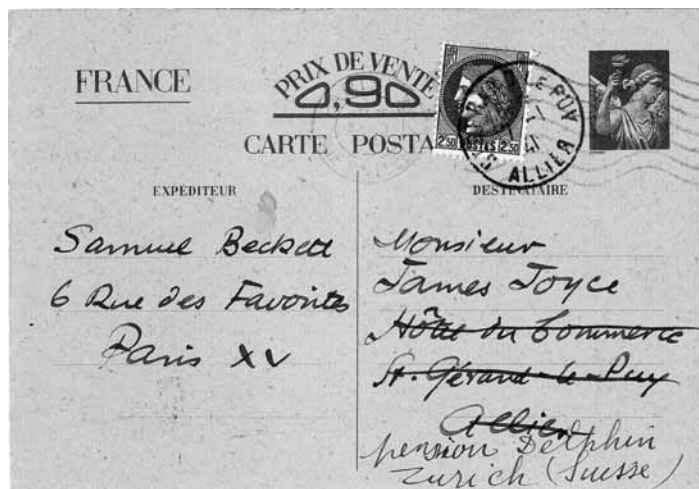 FRANCE
PRIX DE VENTE
0,90
CARTE POSTA
2.50 POSTES 2.50
LE PUY
ALLIER
EXPÉDITEUR
Samuel Beckett
6 Rue des Favorites
Paris XV
DESTINATAIRE
Monsieur
James Joyce
Hôtel du Commerce
St. Gérand-le-Puy
Allier
pension Delphin
Zurich (Suisse)